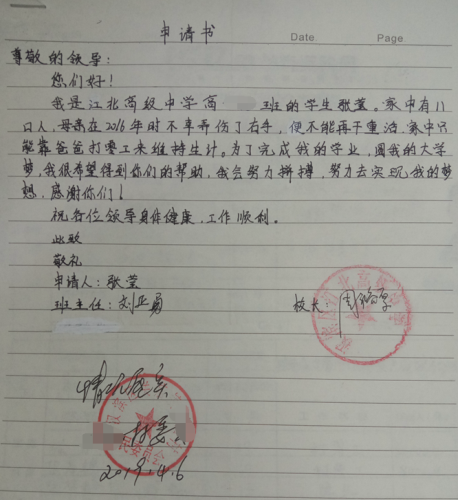 申请书
Date Page
尊敬的领导：
您们好！
我是江北高级中学高 班的学生张莹。家中有八
口人，母亲在2016年时不幸弄伤了右手，便不能再干重活，家中只
能靠爸爸打零工来维持生计。为了完成我的学业，圆我的大学
梦，我很希望得到你们的帮助，我会努力拼搏，努力去实现我的梦
想，感谢你们！
祝各位领导身体健康，工作顺利。
此致
敬礼
申请人：张莹
班主任：刘亚勇
校长：
情况属实
2019.4.6